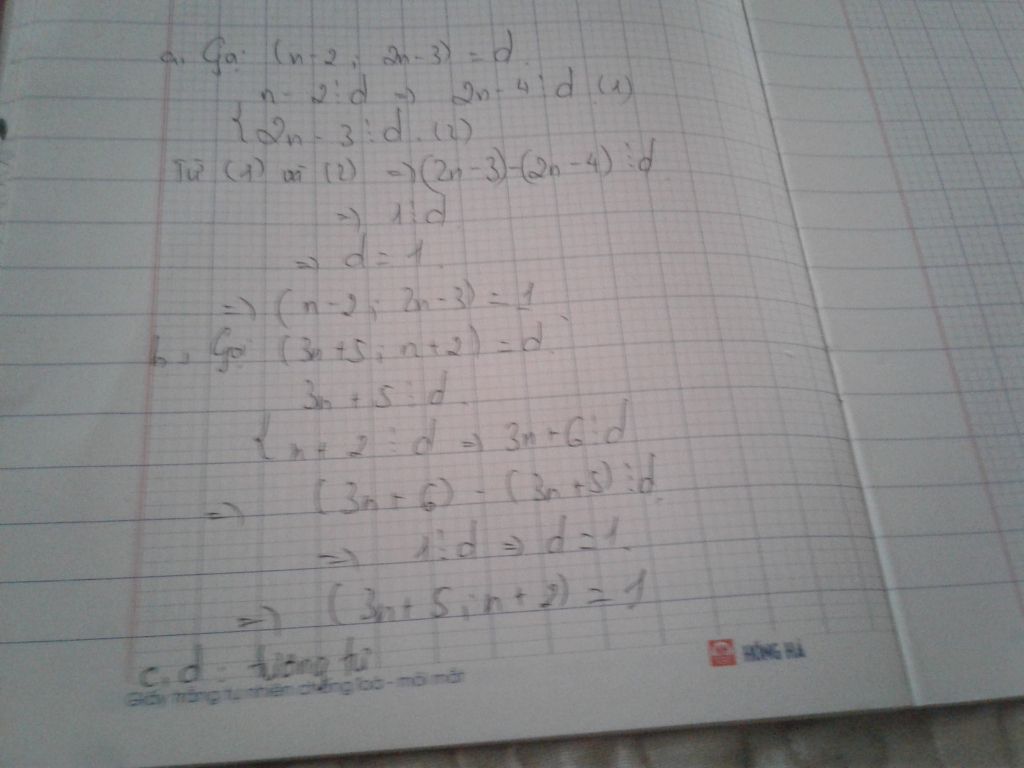 a. Gọi (n-2; 2n-3) = d
n-2⋮d => 2n-4⋮d (1)
{2n-3⋮d. (2)
Từ (1) và (2) => (2n-3)-(2n-4)⋮d
=> 1⋮d
=> d = 1
=> (n-2; 2n-3) = 1
b, Gọi (3n+5; n+2) = d.
3n+5⋮d.
{n+2⋮d => 3n+6⋮d
=> (3n+6) - (3n+5)⋮d
=> 1⋮d => d=1.
=> (3n+5; n+2) = 1
c, d - tương tự
HỒNG HÀ
Giấy trắng tự nhiên chống loá - mỏi mắt